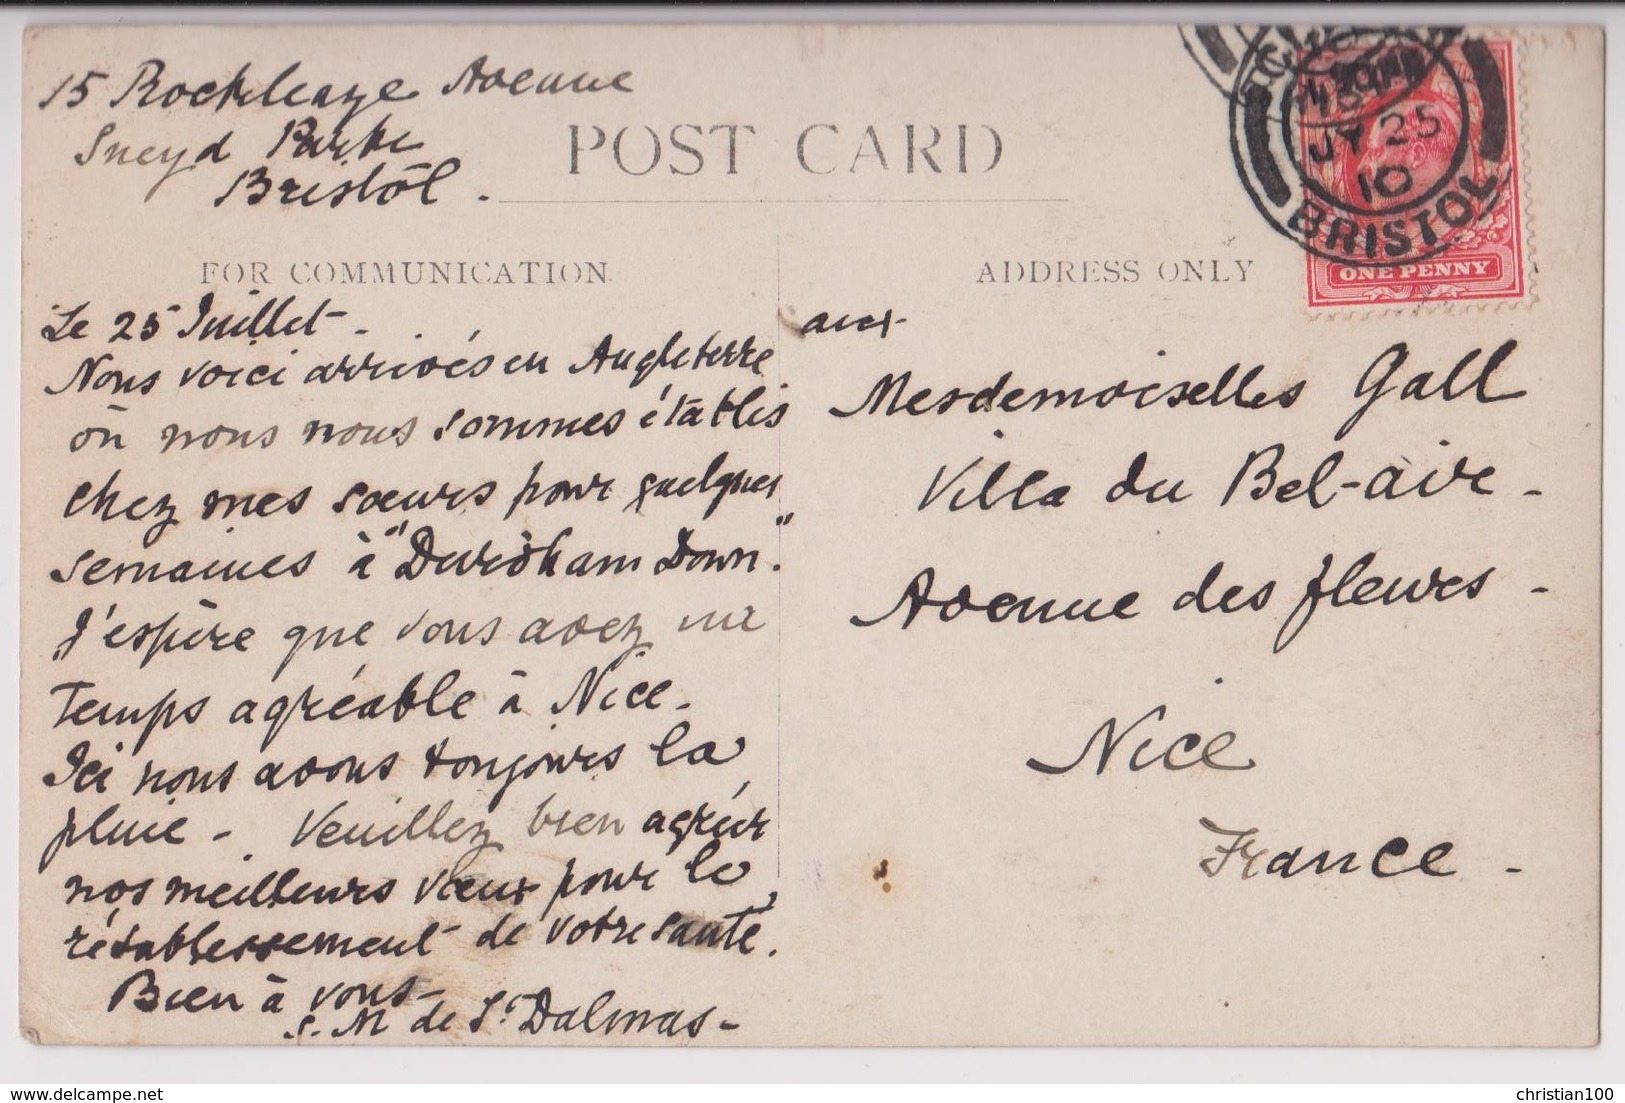 15 Rockleaze Avenue
Sneyd Parke
Bristol.
POST CARD
FOR COMMUNICATION
Le 25 Juillet -
Nous voici arrivés en Angleterre
où nous nous sommes établis
chez mes sœurs pour quelques
semaines à "Durdham Down."
J'espère que vous avez un
temps agréable à Nice -
Ici nous avons toujours la
pluie - Veuillez bien agréer
nos meilleurs vœux pour le
rétablissement de votre santé.
Bien à vous -
S. M de St Dalmas -
ADDRESS ONLY
aux
Mesdemoiselles Gall
Villa du Bel-aire -
Avenue des fleurs -
Nice
France -
JY 25
10
BRISTOL
ONE PENNY
christian100